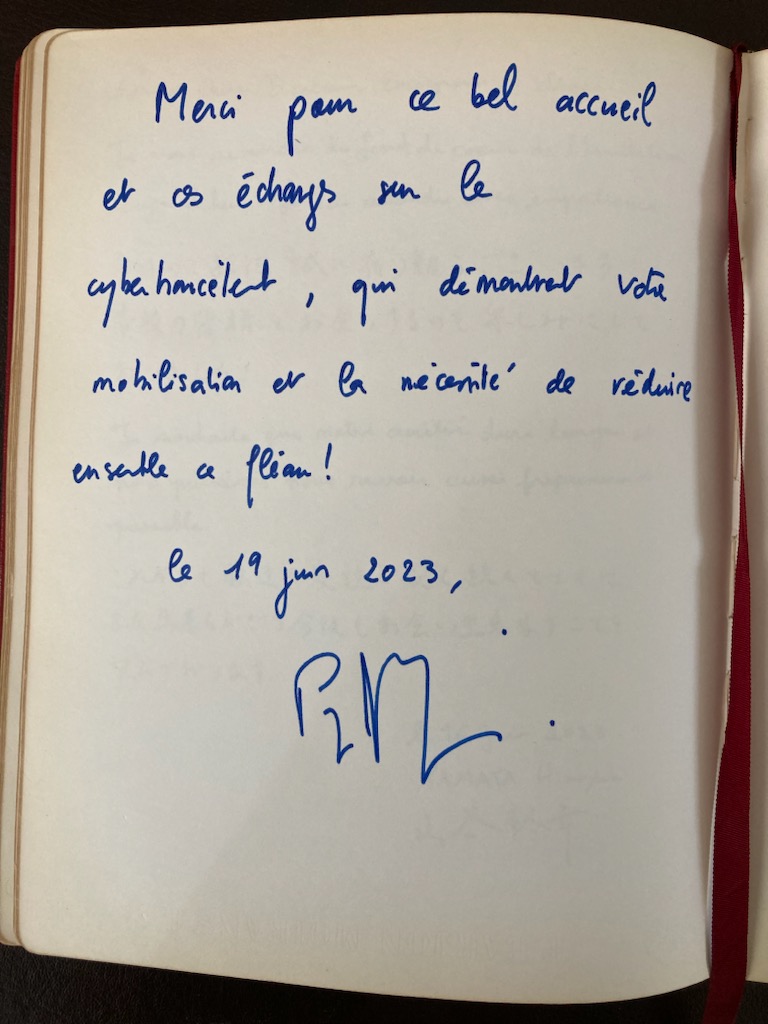 Merci pour ce bel accueil
et ces échanges sur le
cyberharcèlement, qui démontrent votre
mobilisation et la nécessité de réduire
ensemble ce fléau !
le 19 juin 2023,